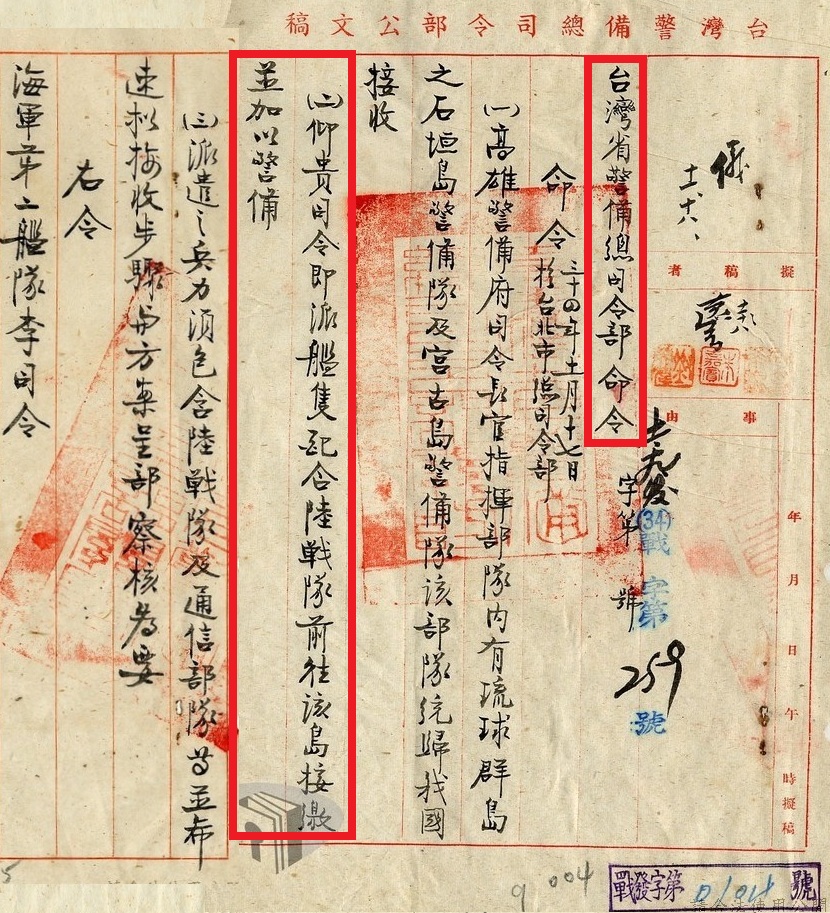 台灣警備總司令部公文稿
擬稿者
事由
年 月 日 午 時擬稿
儀
十一、十八、
(34)戰字第259號
字第 號
台灣省警備總司令部命令
命令
三十四年十一月十七日
於台北市總司令部
(一)高雄警備府司令長官指揮部隊內有琉球群島
之石垣島警備隊及宮古島警備隊該部隊統歸我國
接收
(二)仰貴司令即派艦隻配合陸戰隊前往該島接繳
並加以警備
(三)派遣之兵力須包含陸戰隊及通信部隊等並希
速擬接收步驟與方案呈部察核為要
右令
海軍第二艦隊李司令
9 004
戰發字第0104號
5